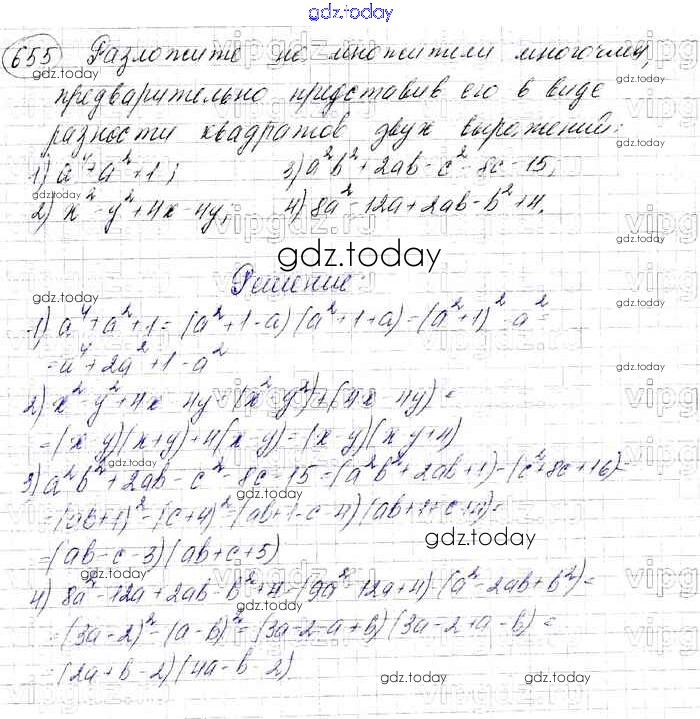 gdz.today
655 Разложите на множители многочлен,
предварительно представив его в виде
разности квадратов двух выражений:
1) a⁴+a²+1; 3) a²b²+2ab-c²-8c-15;
2) x²-y²+4x-4y; 4) 8a²-12a+2ab-b²+4.
gdz.today
Решение:
1) a⁴+a²+1=(a²+1-a)(a²+1+a)=(a²+1)²-a²=
=a⁴+2a²+1-a²
2) x²-y²+4x-4y=(x²-y²)+(4x-4y)=
=(x-y)(x+y)+4(x-y)=(x-y)(x+y+4)
3) a²b²+2ab-c²-8c-15=(a²b²+2ab+1)-(c²+8c+16)=
=(ab+1)²-(c+4)²=(ab+1-c-4)(ab+1+c+4)=
=(ab-c-3)(ab+c+5)
gdz.today
4) 8a²-12a+2ab-b²+4=(9a²-12a+4)-(a²-2ab+b²)=
=(3a-2)²-(a-b)²=(3a-2-a+b)(3a-2+a-b)=
=(2a+b-2)(4a-b-2)
gdz.today